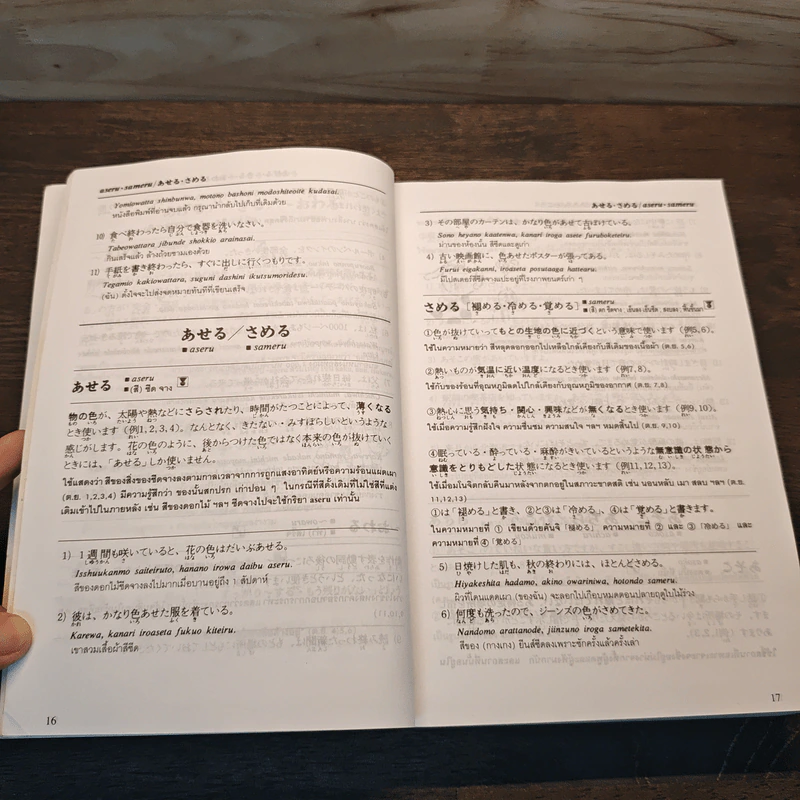 aseru・sameru/あせる・さめる
Yomiowatta shinbunwa, motono bashoni modoshiteoite kudasai.
หนังสือพิมพ์ที่อ่านจบแล้ว กรุณานำกลับไปเก็บที่เดิมด้วย
10) 食べ終わったら自分で食器を洗いなさい。
Tabeowattara jibunde shokkio arainasai.
กินเสร็จแล้ว ล้างถ้วยชามเองด้วย
11) 手紙を書き終わったら、すぐに出しに行くつもりです。
Tegamio kakiowattara, suguni dashini ikutsumoridesu.
(ฉัน) ตั้งใจจะไปส่งจดหมายทันทีที่เขียนเสร็จ
あせる／さめる
■ aseru ■ sameru
あせる ■ aseru
■ (สี) ซีด จาง
物の色が、太陽や熱などにさらされたり、時間がたつことによって、薄くなる
とき使います（例1, 2, 3, 4）。なんとなく、きたない・みすぼらしいというような
感じがします。花の色のように、後からつけた色ではなく本来の色が抜けていく
ときには、「あせる」しか使いません。
ใช้แสดงว่า สีของสิ่งของซีดจางลงตามกาลเวลาจากการถูกแสงอาทิตย์หรือความร้อนแผดเผา
(ต.ย. 1,2,3,4) มีความรู้สึกว่า ของนั้นสกปรก เก่าปอน ๆ ในกรณีที่สีดั้งเดิมที่ไม่ใช่สีที่แต่ง
เติมเข้าไปในภายหลัง เช่น สีของดอกไม้ ฯลฯ ซีดจางไปจะใช้กริยา aseru เท่านั้น
1) 1週間も咲いていると、花の色はだいぶあせる。
Isshuukanmo saiteiruto, hanano irowa daibu aseru.
สีของดอกไม้ซีดจางลงไปมากเมื่อบานอยู่ถึง 1 สัปดาห์
2) 彼は、かなり色あせた服を着ている。
Karewa, kanari iroaseta fukuo kiteiru.
เขาสวมเสื้อผ้าสีซีด
16
あせる・さめる/aseru・sameru
3) その部屋のカーテンは、かなり色があせて古ぼけている。
Sono heyano kaatenwa, kanari iroga asete furuboketeiru.
ม่านของห้องนั้น สีซีดและดูเก่า
4) 古い映画館に、色あせたポスターが張ってある。
Furui eigakanni, iroaseta posutaaga hattearu.
มีโปสเตอร์สีซีดจางแปะอยู่ที่โรงภาพยนตร์เก่า ๆ
さめる [褪める・冷める・覚める] ■ sameru
①色が抜けていってもとの生地の色に近づくという意味で使います（例5, 6）。
ใช้ในความหมายว่า สีหลุดลอกออกไปเหลือใกล้เคียงกับสีเดิมของเนื้อผ้า (ต.ย. 5,6)
②熱いものが気温に近い温度になるとき使います（例7, 8）。
ใช้กับของร้อนที่อุณหภูมิลดไปใกล้เคียงกับอุณหภูมิของอากาศ (ต.ย. 7,8)
③熱心に思う気持ち・関心・興味などが無くなるとき使います（例9, 10）。
ใช้เมื่อความรู้สึกฝังใจ ความชื่นชม ความสนใจ ฯลฯ หมดสิ้นไป (ต.ย. 9,10)
④眠っている・酔っている・麻酔がきいているような無意識の状態から
意識をとりもどした状態になるとき使います（例11, 12, 13）。
ใช้เมื่อมโนจิตกลับคืนมาหลังจากตกอยู่ในสภาวะขาดสติ เช่น นอนหลับ เมา สลบ ฯลฯ (ต.ย.
11,12,13)
①は「褪める」と書き、②と③は「冷める」、④は「覚める」と書きます。
ในความหมายที่ ① เขียนด้วยคันจิ「褪める」ความหมายที่ ② และ ③「冷める」และ
ความหมายที่ ④「覚める」
5) 日焼けした肌も、秋の終わりには、ほとんどさめる。
Hiyakeshita hadamo, akino owariniwa, hotondo sameru.
ผิวที่โดนแดดเผา (ของฉัน) จะลอกไปเกือบหมดตอนปลายฤดูใบไม้ร่วง
6) 何度も洗ったので、ジーンズの色がさめてきた。
Nandomo arattanode, jiinzuno iroga sametekita.
สีของ (กางเกง) ยีนส์ซีดลงเพราะซักครั้งแล้วครั้งเล่า
17